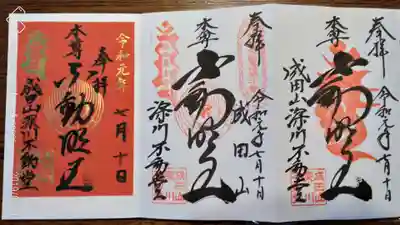 奉拝
令和元年七月十日
本尊
不動明王
成田山深川不動堂
奉拝
令和元年七月十日
本尊
不動明王
成田山
深川不動堂
令和元年
七月十日
奉拝
本尊
不動明王
成田山深川不動堂